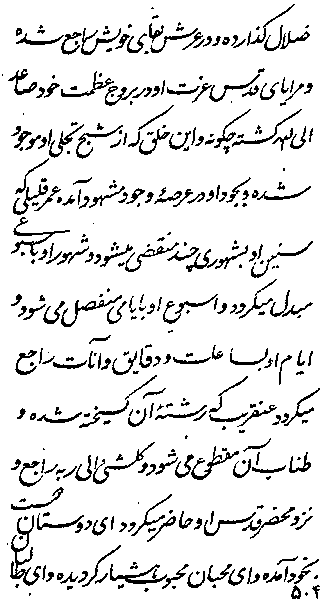 ضلال گذارده و در عرش بقای خویش راجع شده
و مرایای قدس عزت او در بروج عظمت خود صاعد
الی الله گشته چگونه و این خلق که از شبح تجلی او موجود
شده و بجود او در عرصهٔ وجود مشهود آمده عمر قلیلی که
سنین او بشهوری چند منقضی میشود و شهور او باسبوعی
مبدل میگردد و اسبوع او بایامی منفصل می شود و
ایام او بساعات و دقایق و آنات راجع
میگردد عنقریب که رشتهٔ آن گسیخته شده و
طناب آن مقطوع می شود و کلشئ الی ربه راجع و
نزد محضر قدس او حاضر میگردد ای دوستان هست
بخود آمده و ای محبان محبوب هشیار گردیده و ای طالبان
۵۰۴